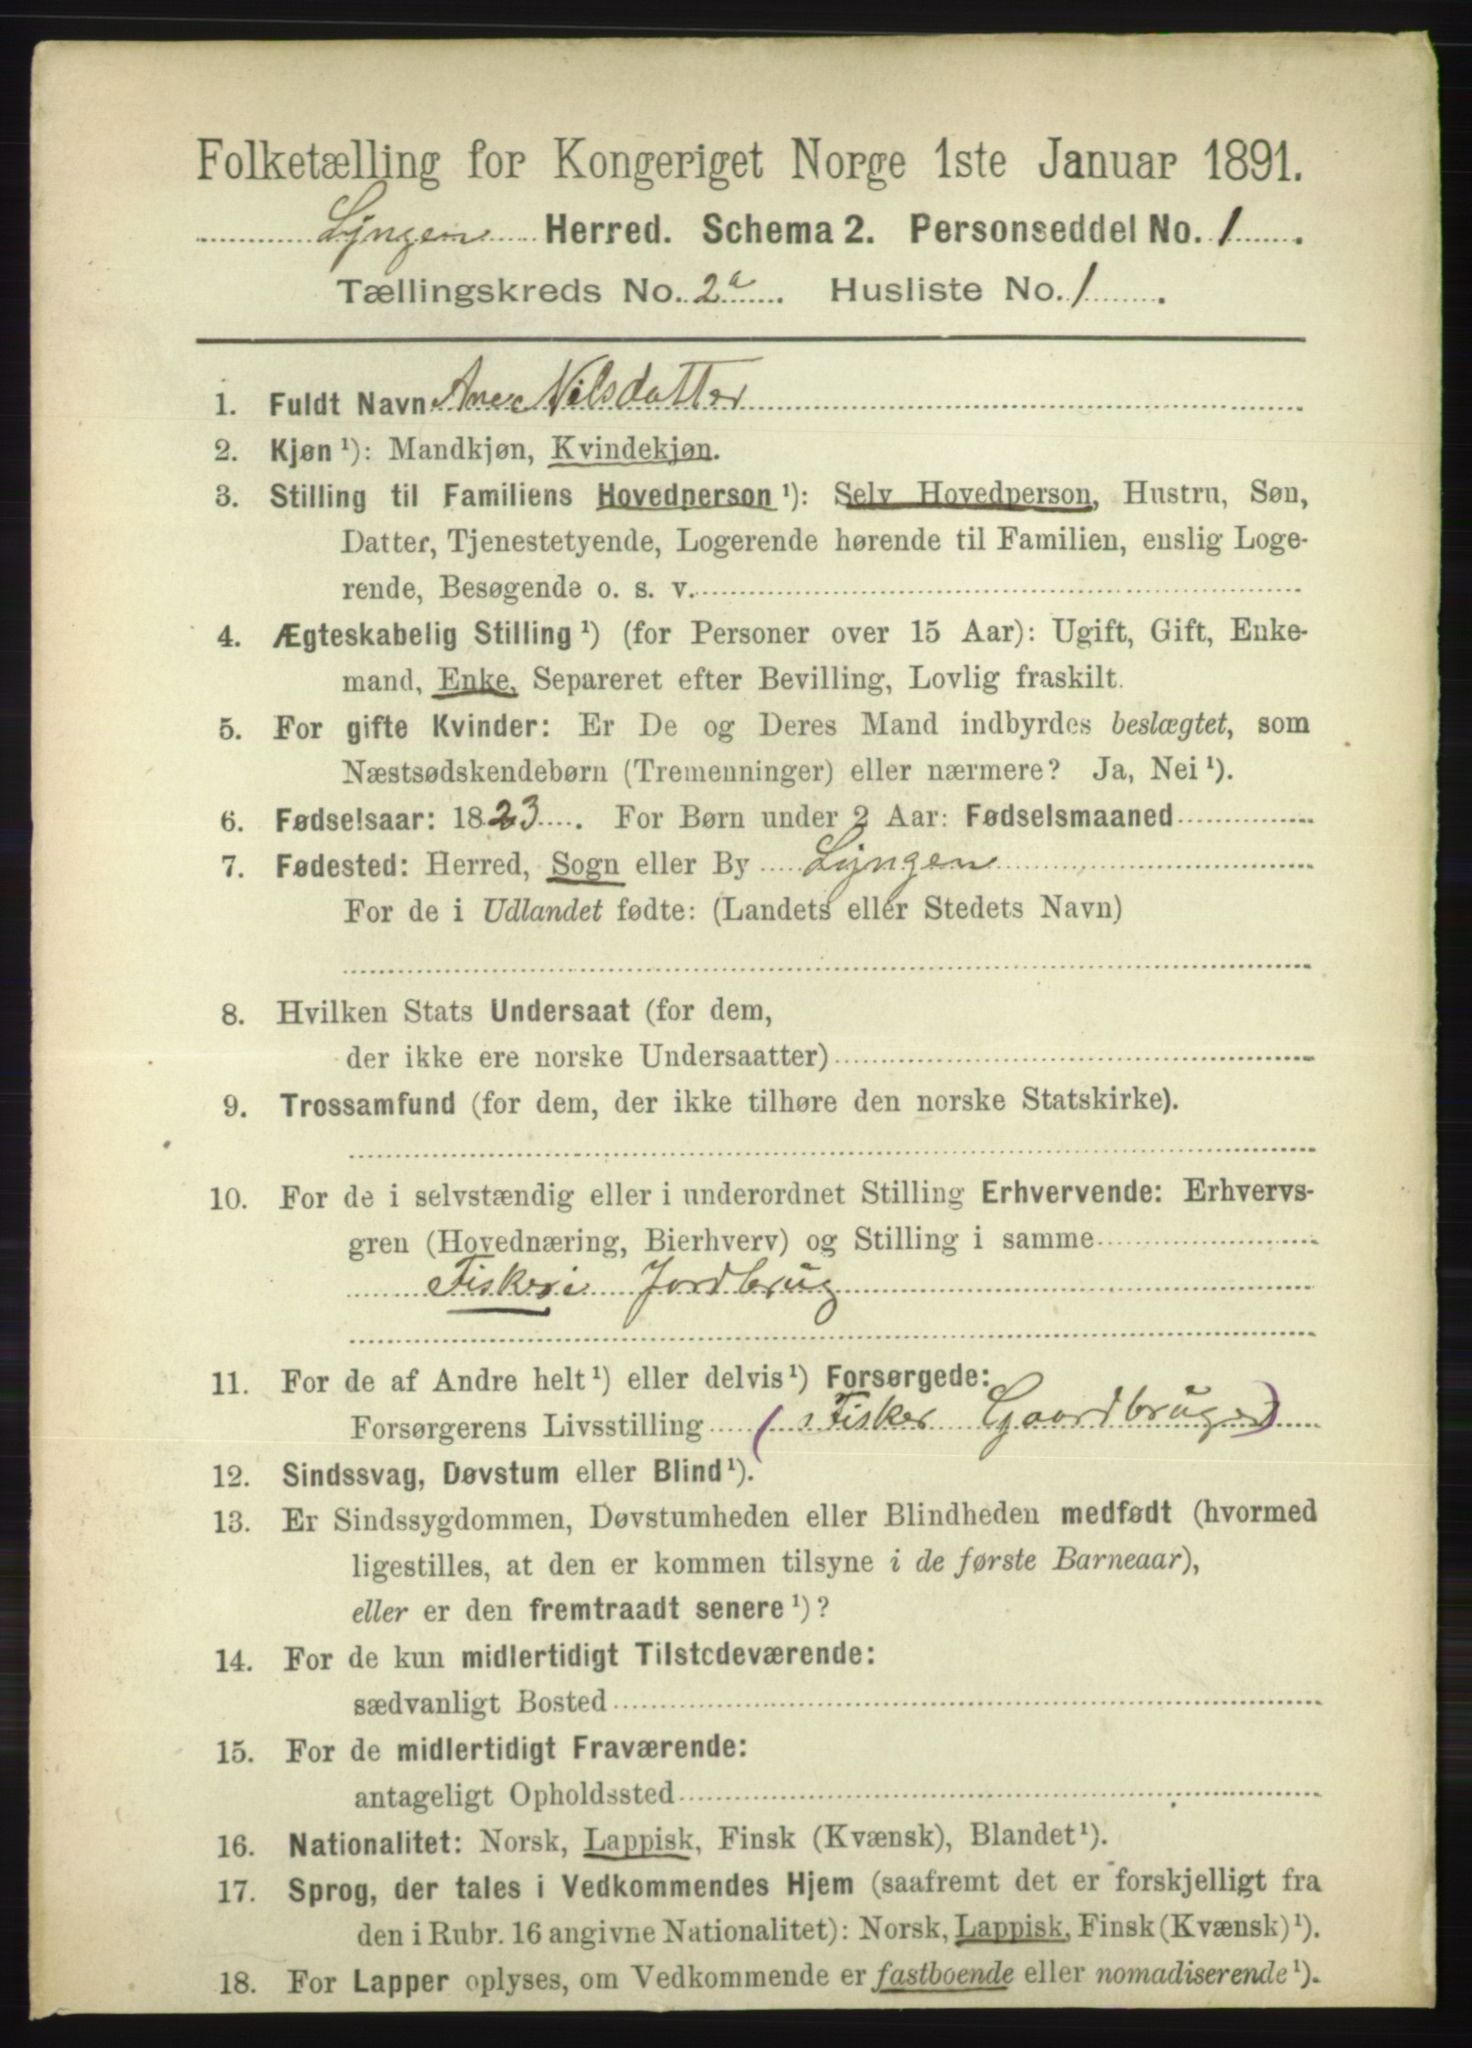 Folketælling for Kongeriget Norge 1ste Januar 1891.
Lyngen Herred. Schema 2. Personseddel No. 1.
Tællingskreds No. 2a. Husliste No. 1.
1. Fuldt Navn Ane Nilsdatter
2. Kjøn¹): Mandkjøn, Kvindekjøn.
3. Stilling til Familiens Hovedperson¹): Selv Hovedperson, Hustru, Søn,
Datter, Tjenestetyende, Logerende hørende til Familien, enslig Loge-
rende, Besøgende o. s. v.
4. Ægteskabelig Stilling¹) (for Personer over 15 Aar): Ugift, Gift, Enke-
mand, Enke, Separeret efter Bevilling, Lovlig fraskilt.
5. For gifte Kvinder: Er De og Deres Mand indbyrdes beslægtet, som
Næstsødskendebørn (Tremenninger) eller nærmere? Ja, Nei¹).
6. Fødselsaar: 1823. For Børn under 2 Aar: Fødselsmaaned
7. Fødested: Herred, Sogn eller By Lyngen
For de i Udlandet fødte: (Landets eller Stedets Navn)
8. Hvilken Stats Undersaat (for dem,
der ikke ere norske Undersaatter)
9. Trossamfund (for dem, der ikke tilhøre den norske Statskirke).
10. For de i selvstændig eller i underordnet Stilling Erhvervende: Erhvervs-
gren (Hovednæring, Bierhverv) og Stilling i samme
Fiskeri Jordbrug
11. For de af Andre helt¹) eller delvis¹) Forsørgede:
Forsørgerens Livsstilling (Fisker Gaardbruger)
12. Sindssvag, Døvstum eller Blind¹).
13. Er Sindssygdommen, Døvstumheden eller Blindheden medfødt (hvormed
ligestilles, at den er kommen tilsyne i de første Barneaar),
eller er den fremtraadt senere¹)?
14. For de kun midlertidigt Tilstedeværende:
sædvanligt Bosted
15. For de midlertidigt Fraværende:
antageligt Opholdssted
16. Nationalitet: Norsk, Lappisk, Finsk (Kvænsk), Blandet¹).
17. Sprog, der tales i Vedkommendes Hjem (saafremt det er forskjelligt fra
den i Rubr. 16 angivne Nationalitet): Norsk, Lappisk, Finsk (Kvænsk)¹).
18. For Lapper oplyses, om Vedkommende er fastboende eller nomadiserende¹).